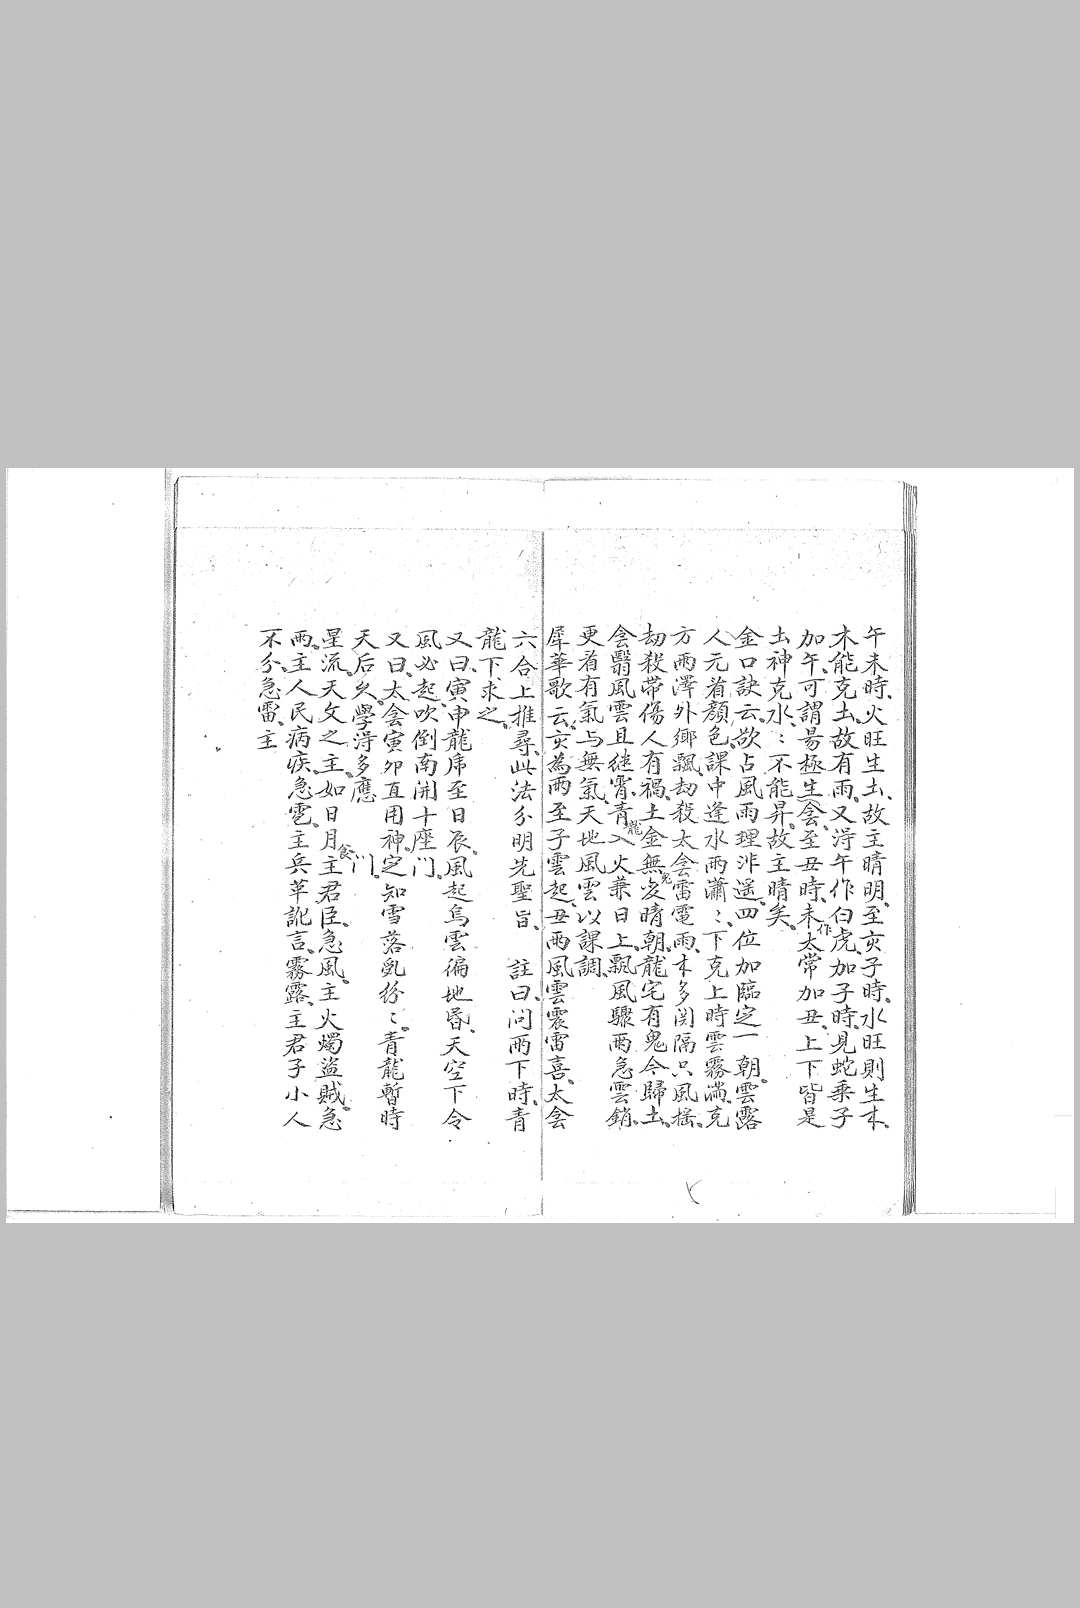 午未時、火旺生土、故主晴明、至亥子時、水旺則生木、
木能克土、故有雨、又淂午作白虎、加子時、見蛇乗子
加午、可謂昜極生侌、至丑時、未作太常加丑、上下皆是
土神克水、〻不能昇、故主晴矣、
金口訣云、欲占風雨理非遥、四位加臨定一朝、雲露
人元看顔色、課中逢水雨瀟〻、下克上時雲霧滿、克
方雨澤外鄉飄、劫殺太侌雷電雨、木多関隔只風揺、
劫殺帯傷人有禍、土金無炁晴朝、龍宅有鬼令歸土、
侌翳風雲且継霄、青龍入火兼日上、飄風驟雨急雲銷、
更看有氣与無氣、天地風雲以課調、
犀華歌云、亥為雨至子雲起、丑雨風雲震雷喜、太侌
六合上推尋、此法分明先聖旨、 註曰、问雨下時、青
龍下求之、
又曰、寅申龍虎至日辰、風起烏雲徧地昏、天空下令
風必起、吹倒南闹十座门、
又曰、太侌寅卯直用神、定知雪落乱紛〻、青龍暫時
天后久、學淂多應门、
星流、天文之主、如日月食主君臣、急風、主火燭盗賊、急
雨、主人民病疾、急雹、主兵革訛言、霧露、主君子小人
不分、急雷、主